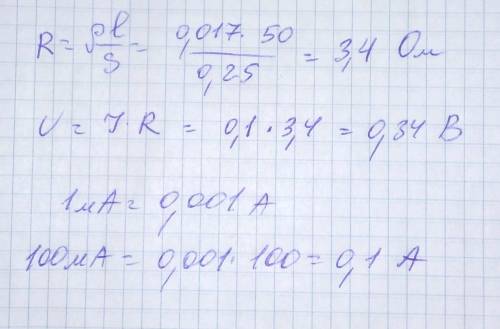 R = ρl/S = 0,017 · 50 / 0,25 = 3,4 Ом
U = I · R = 0,1 · 3,4 = 0,34 В
1 мА = 0,001 А
100 мА = 0,001 · 100 = 0,1 А